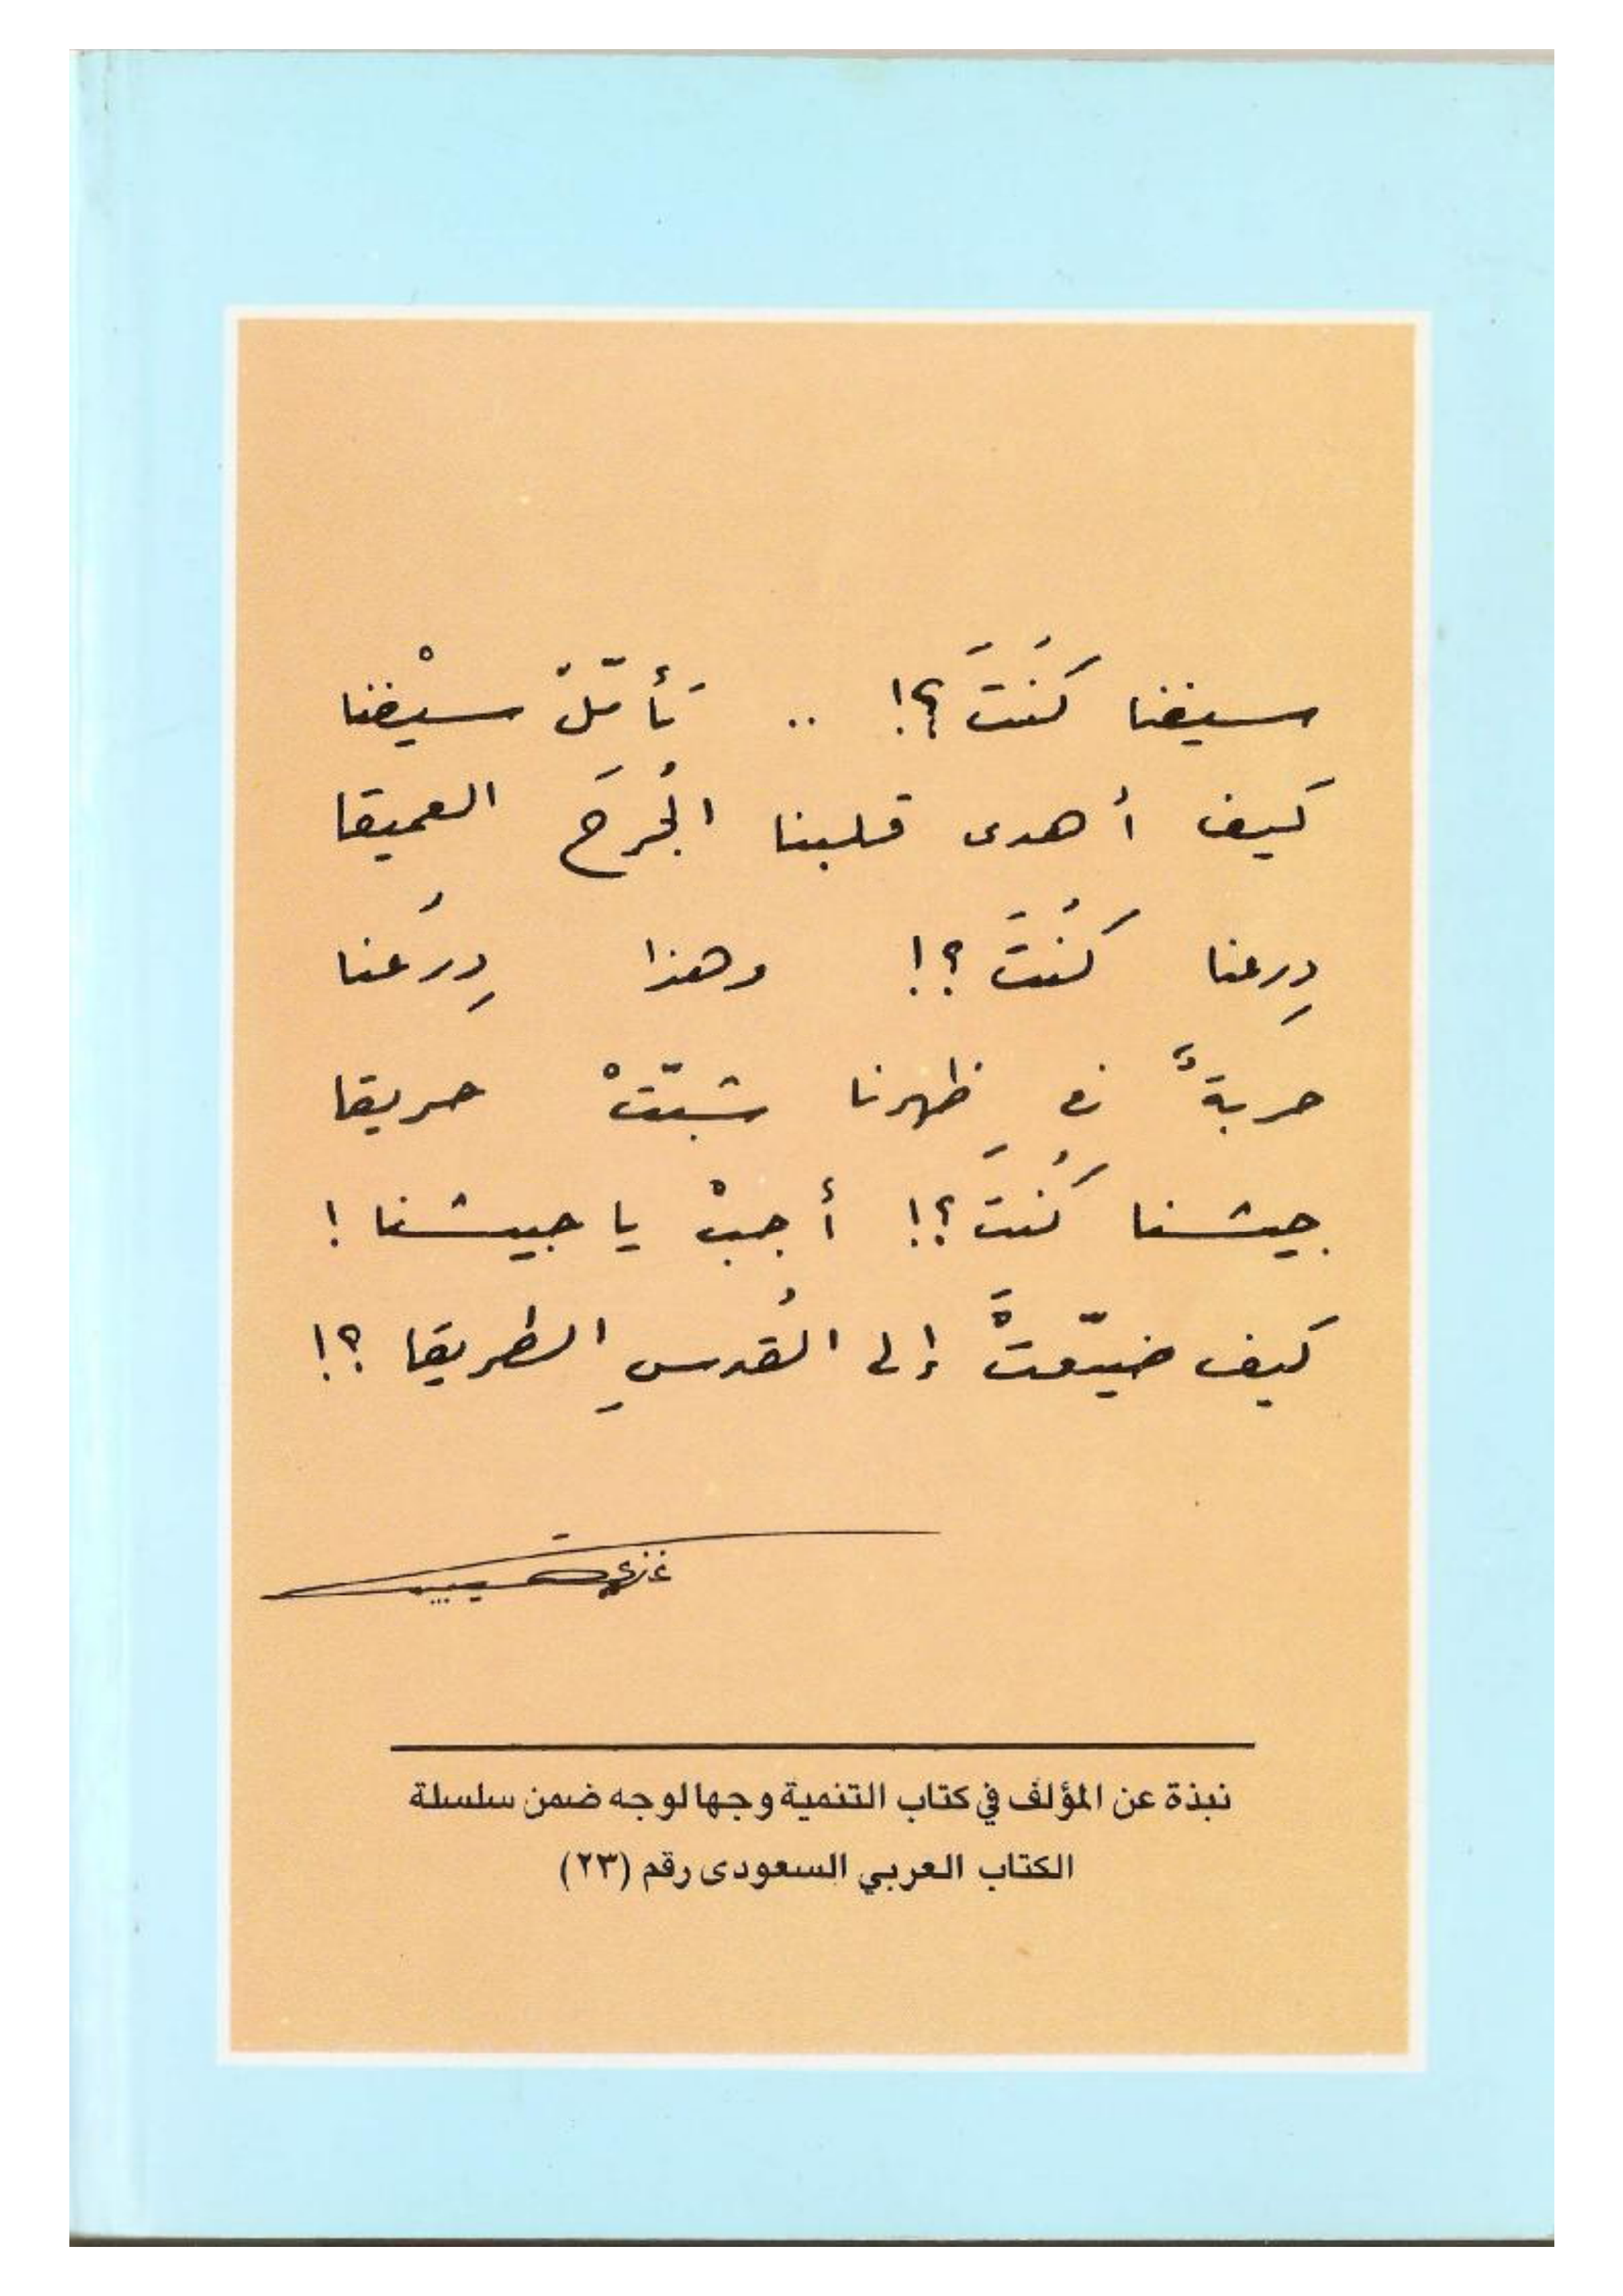 سيفنا كُنتَ؟! .. تَأمّلْ سيْفنا
كيف أهدى قلبنا الجُرحَ العميقا
دِرعنا كُنتَ؟! وهذا دِرعُنا
حربةٌ في ظهرِنا شبّتْ حريقا
جيشنا كُنتَ؟! أجبْ يا جيشنا!
كيف ضيّعتَْ إلى القُدسِ الطريقا؟!
غازي القصيبي
نبذة عن المؤلف في كتاب التنمية وجها لوجه ضمن سلسلة
الكتاب العربي السعودى رقم (٢٣)